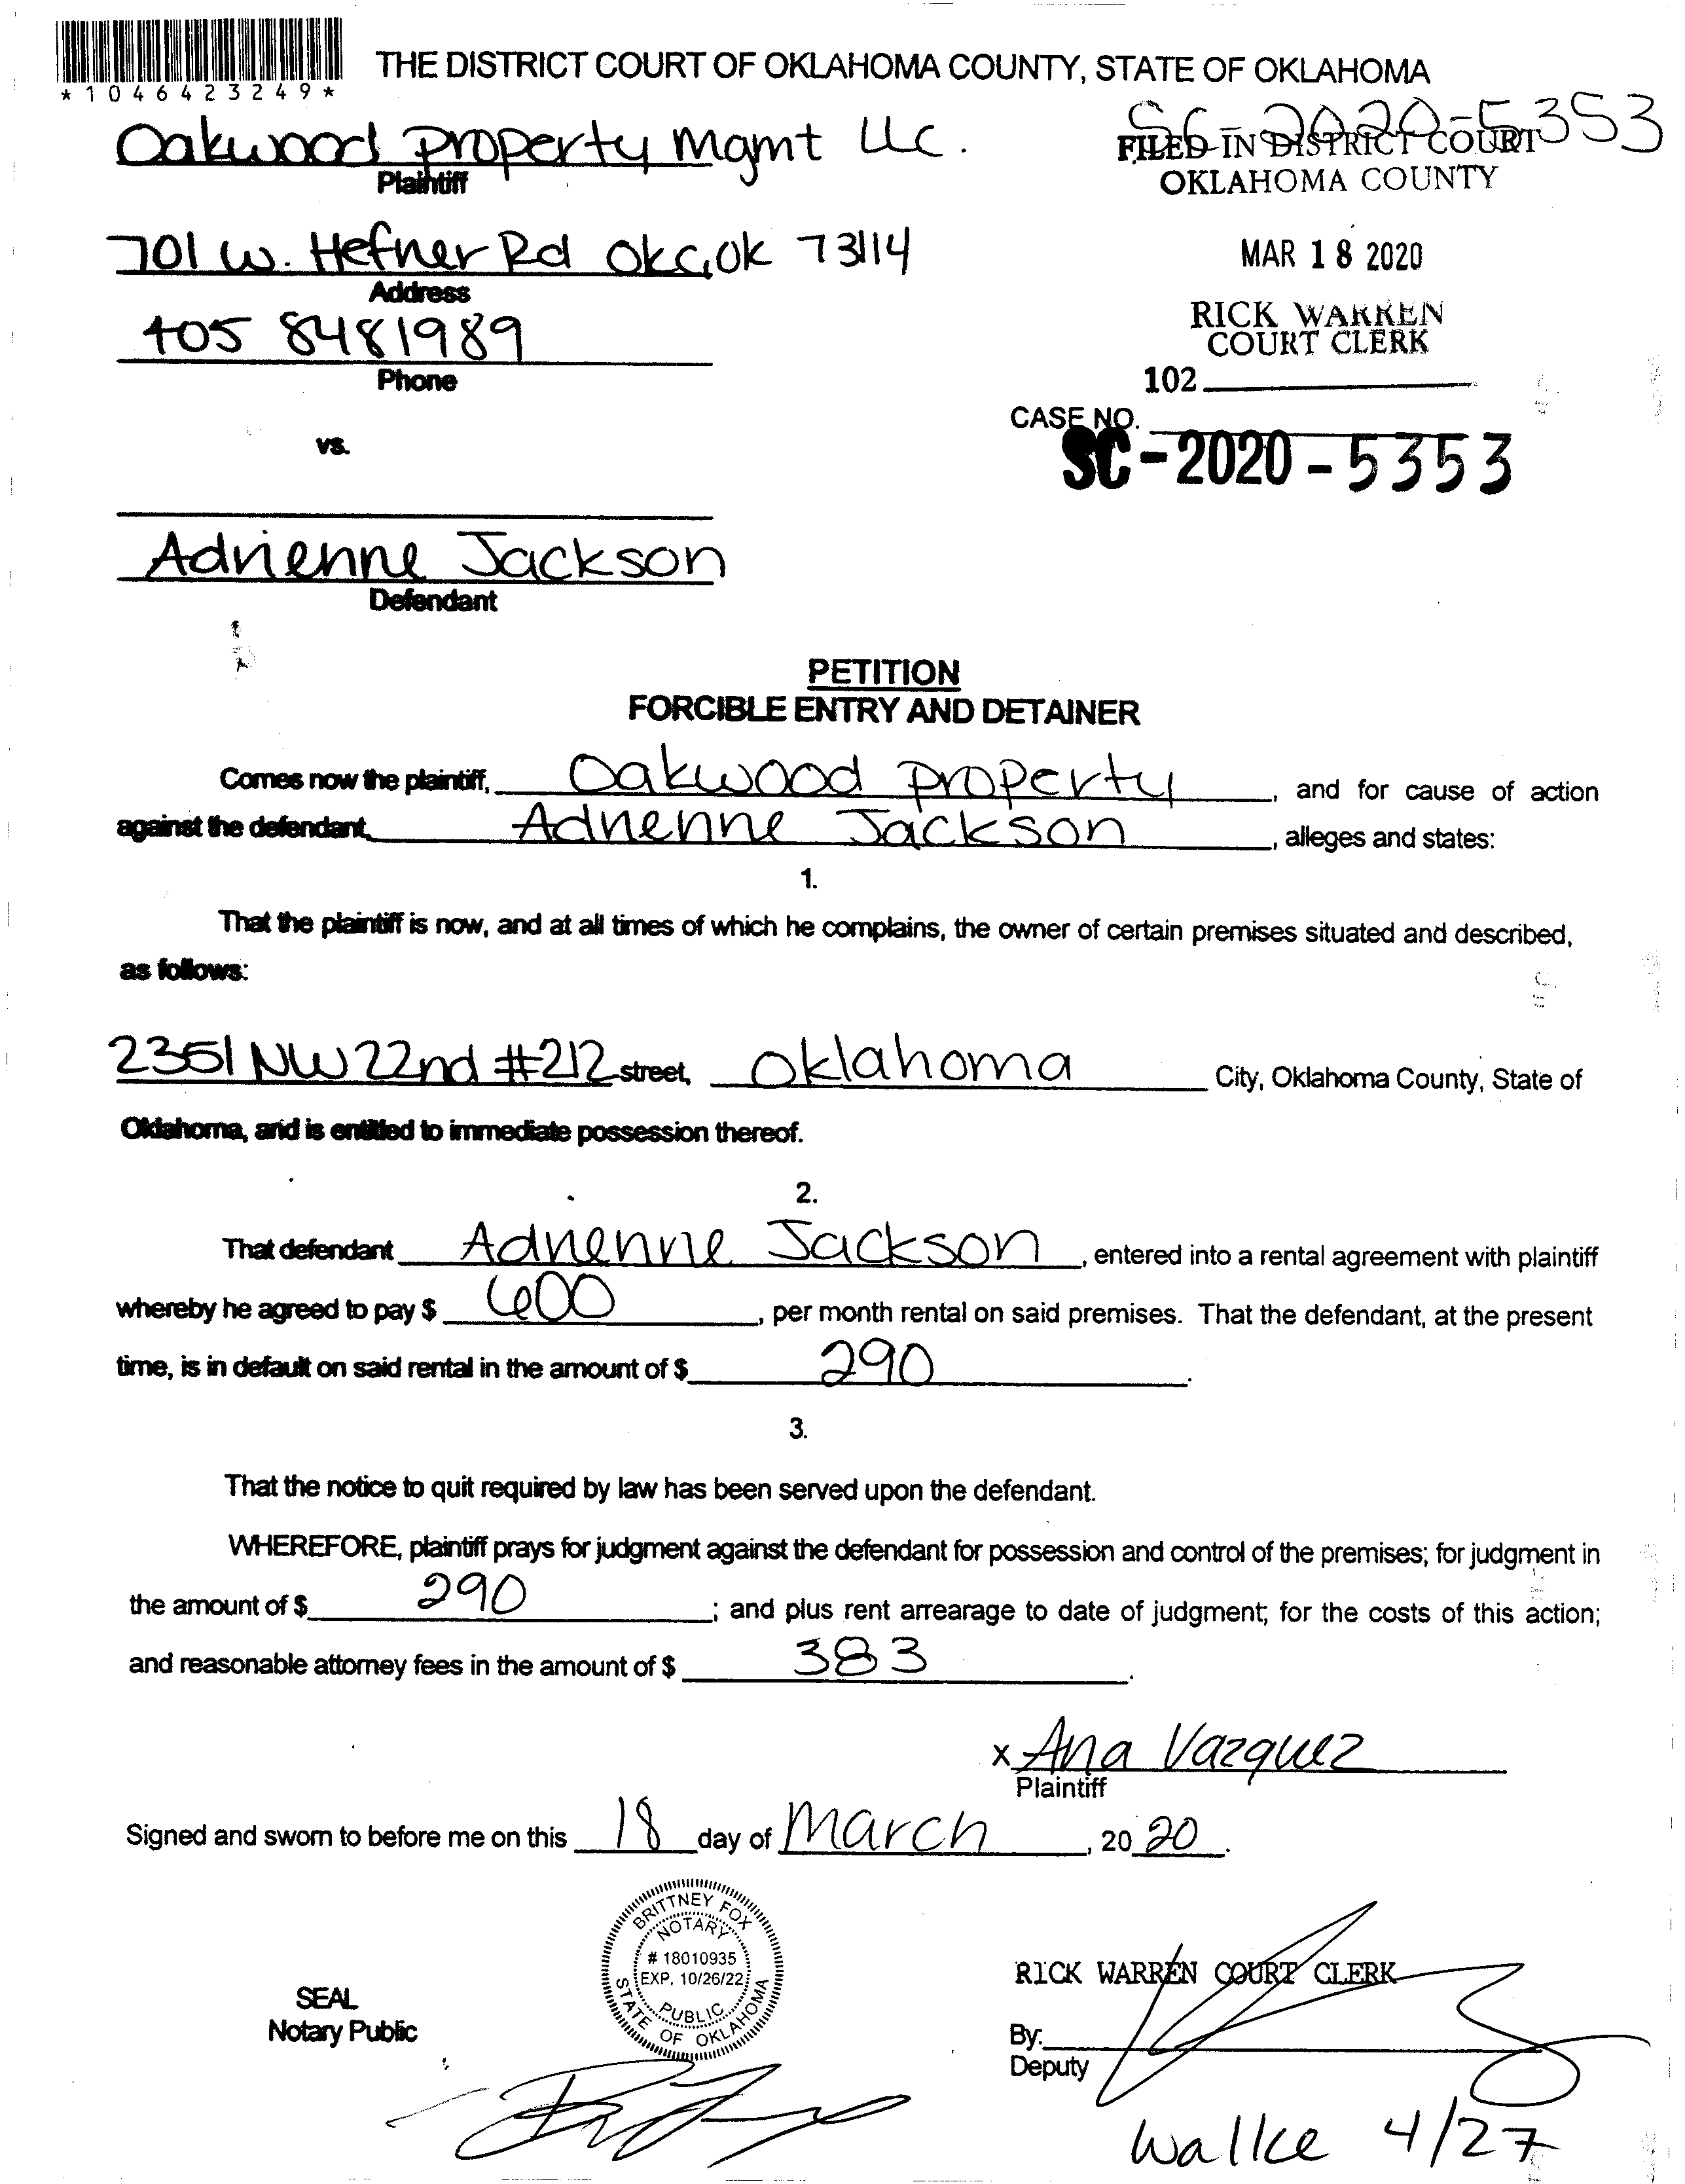 THE DISTRICT COURT OF OKLAHOMA COUNTY, STATE OF OKLAHOMA
*1046423249*
SC-2020-5353
Oakwood Property Mgmt LLC.
Plaintiff
FILED IN DISTRICT COURT
OKLAHOMA COUNTY
701 W. Hefner Rd OKC, OK 73114
Address
MAR 18 2020
405 8481989
Phone
RICK WARREN
COURT CLERK
102
CASE NO.
SC-2020-5353
vs.
Adrienne Jackson
Defendant
PETITION
FORCIBLE ENTRY AND DETAINER
Comes now the plaintiff, Oakwood Property, and for cause of action
against the defendant, Adrienne Jackson, alleges and states:
1.
That the plaintiff is now, and at all times of which he complains, the owner of certain premises situated and described,
as follows:
2351 NW 22nd #212 street, Oklahoma City, Oklahoma County, State of
Oklahoma, and is entitled to immediate possession thereof.
2.
That defendant Adrienne Jackson, entered into a rental agreement with plaintiff
whereby he agreed to pay $ 600, per month rental on said premises. That the defendant, at the present
time, is in default on said rental in the amount of $ 290.
3.
That the notice to quit required by law has been served upon the defendant.
WHEREFORE, plaintiff prays for judgment against the defendant for possession and control of the premises; for judgment in
the amount of $ 290; and plus rent arrearage to date of judgment; for the costs of this action;
and reasonable attorney fees in the amount of $ 383.
x Ana Vazquez
Plaintiff
Signed and sworn to before me on this 18 day of March, 2020.
BRITTNEY FOX
NOTARY
# 18010935
EXP. 10/26/22
PUBLIC
STATE OF OKLAHOMA
SEAL
Notary Public
RICK WARREN COURT CLERK
By:
Deputy
Walke 4/27